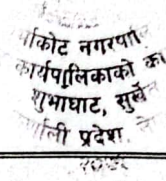 कोट नगरपा
कार्यपालिकाको का
शुभाघाट, सुर्खे
प्रदेश